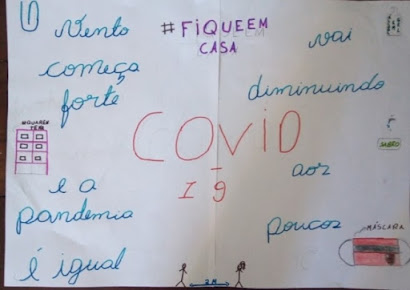 #FIQUEEM
CASA
Vento
começa
forte,
vai
diminuindo
#QUAREN
TENA
COVID
-
19
SABÃO
e a
pandemia
é igual
aos
poucos
MÁSCARA
2 M